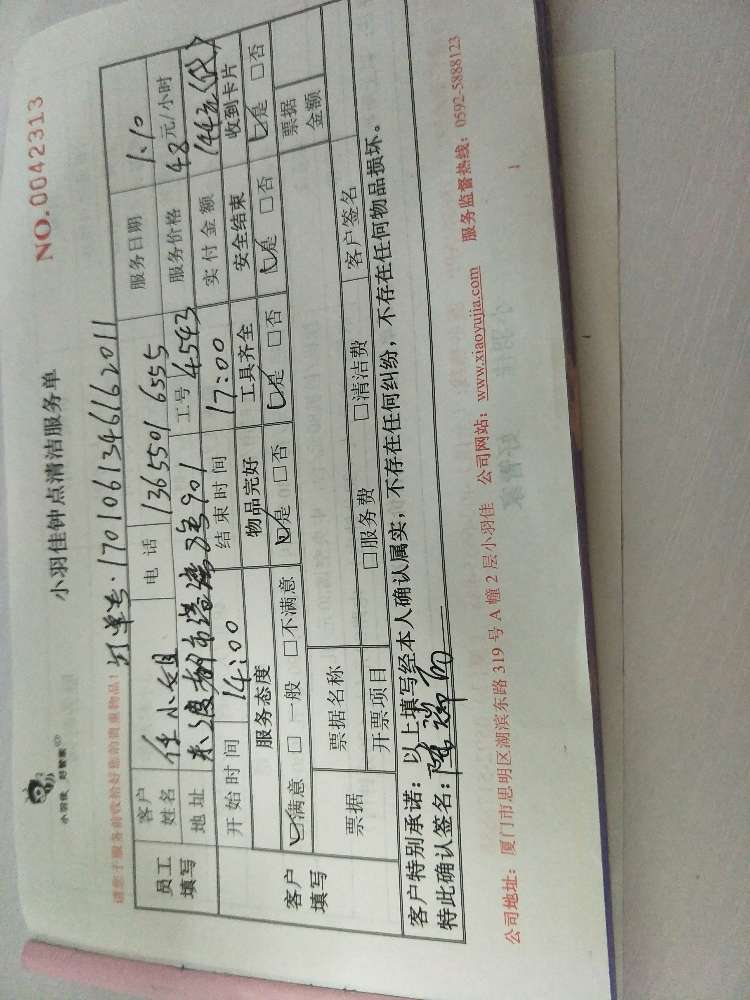 小羽佳 好管家
小羽佳钟点清洁服务单
NO.0042313
请您于服务前收拾好您的贵重物品！
订单号·1701061346162011
员工填写
客户姓名 任小姐 电话 13655016555 服务日期 1.10
地址 东渡都市港湾 901 工号 4543 服务价格 48元/小时
开始时间 14:00 结束时间 17:00 实付金额 144元
客户填写
服务态度 物品完好 工具齐全 安全结束 收到卡片
☑满意 □一般 □不满意 ☑是 □否 ☑是 □否 ☑是 □否 ☑是 □否
票据 票据名称 □服务费 □清洁费 票据金额
开票项目 客户签名
客户特别承诺：以上填写经本人确认属实，不存在任何纠纷，不存在任何物品损坏。
特此确认签名：陈
公司地址：厦门市思明区湖滨东路 319 号 A 幢 2 层小羽佳 公司网站：www.xiaoyujia.com 服务监督热线：0592-5888123